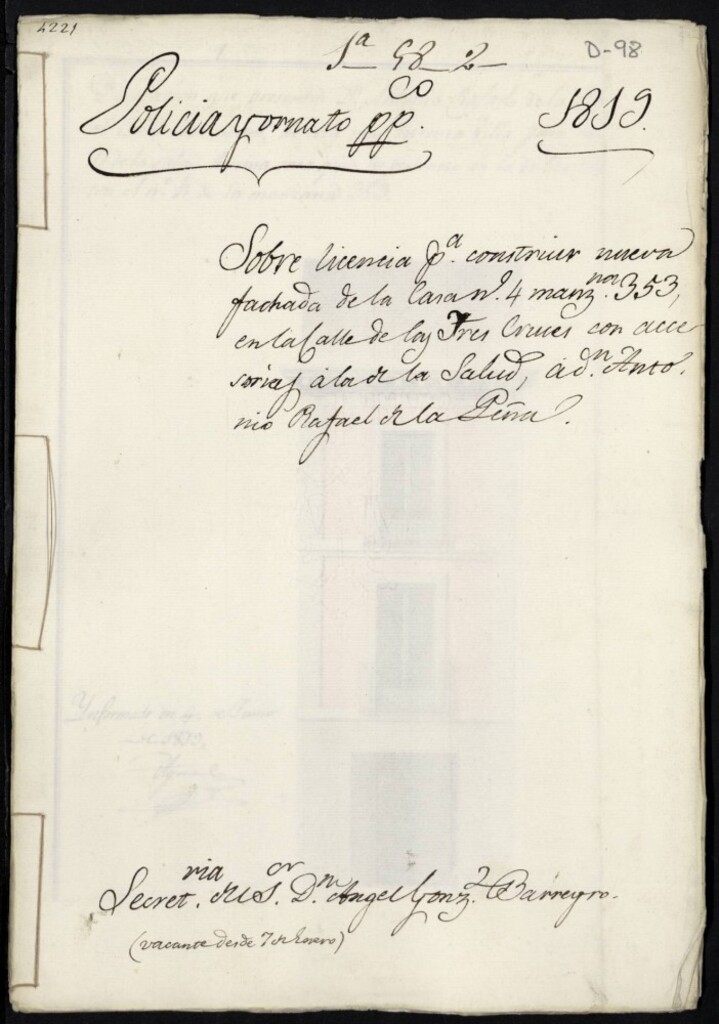 4221
1ª 58 2
D-98
Policia y ornato pp.co 1819.
Sobre licencia p.a construir nueva
fachada de la Casa n.º 4 manz.na 353,
en la Calle de las Tres Cruces con acce
sorias á la de la Salud, á d.n Anto.
nio Rafael de la Peña.
Ynformado en 4. de
de 1819.
Secret.ria del S.or D.n Angel Gonz.z Barreyro.
(vacante desde 7 de Enero)